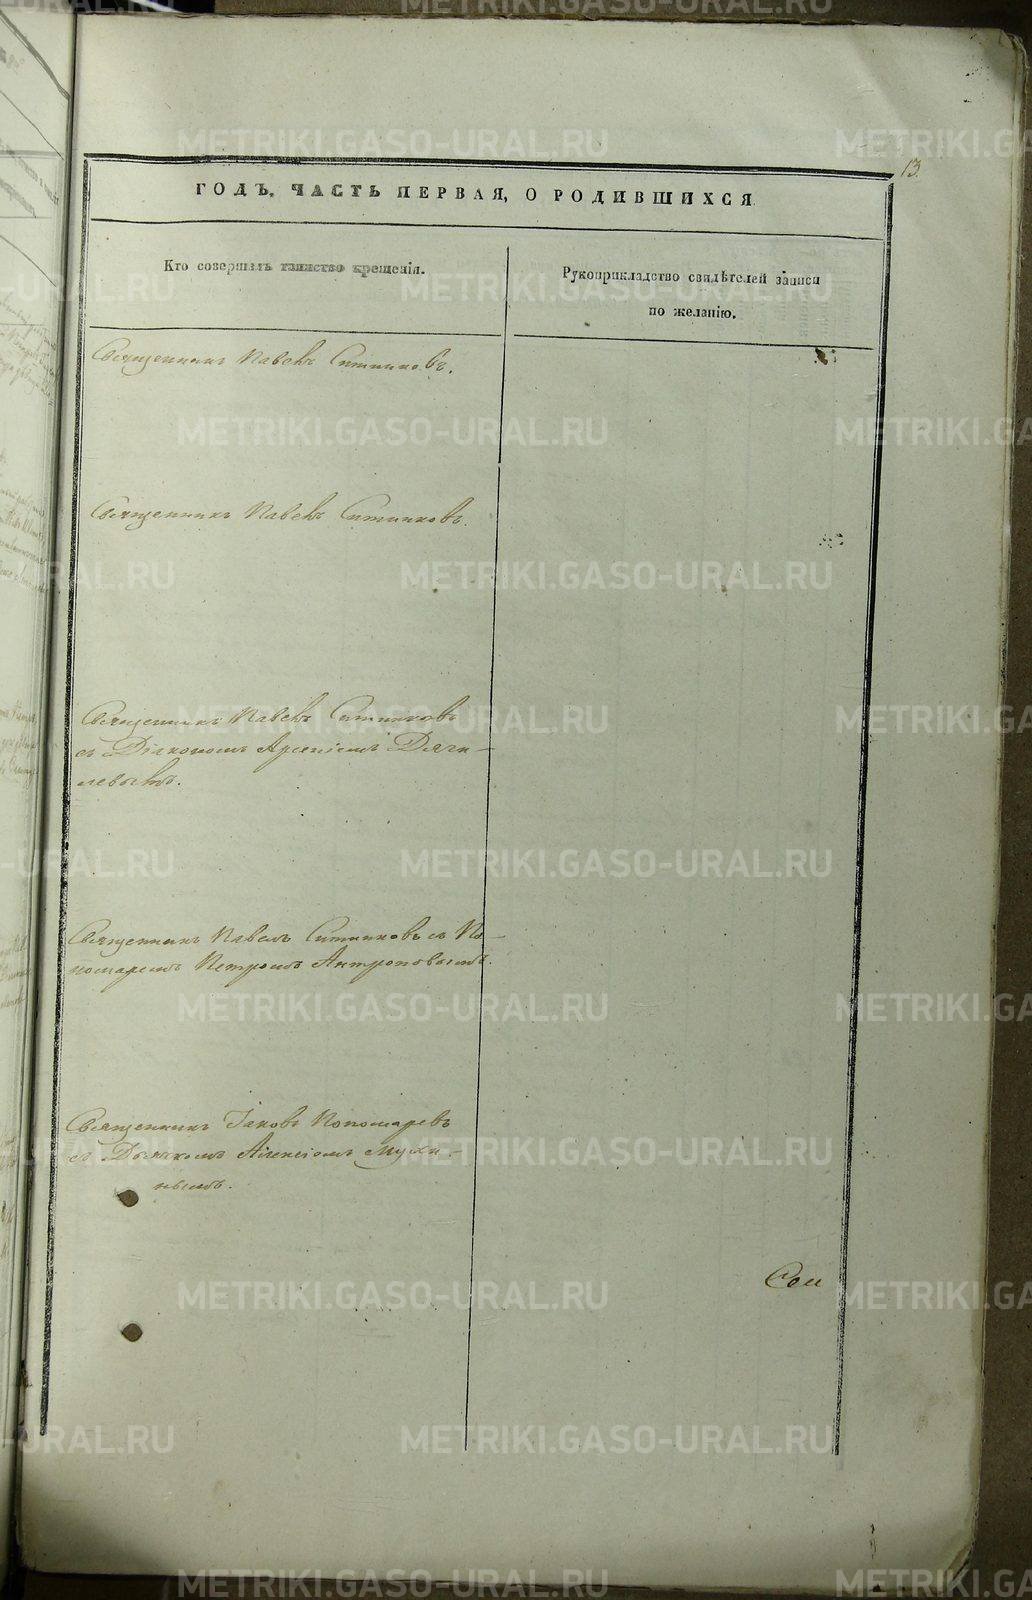 13.
ГОДЪ. ЧАСТЬ ПЕРВАЯ, О РОДИВШИХСЯ
Кто совершалъ таинство крещенія.
Рукоприкладство свидѣтелей записи
по желанію.
Священникъ Павелъ Ситниковъ.
Священникъ Павелъ Ситниковъ.
Священникъ Павелъ Ситниковъ
съ Діакономъ Арсеніемъ Дяги-
левымъ.
Священникъ Павелъ Ситниковъ съ По-
номаремъ Петромъ Антроповымъ.
Священникъ Іаковъ Пономаревъ
съ Дьячкомъ Алексіемъ
нымъ.
METRIKI.GASO-URAL.RU